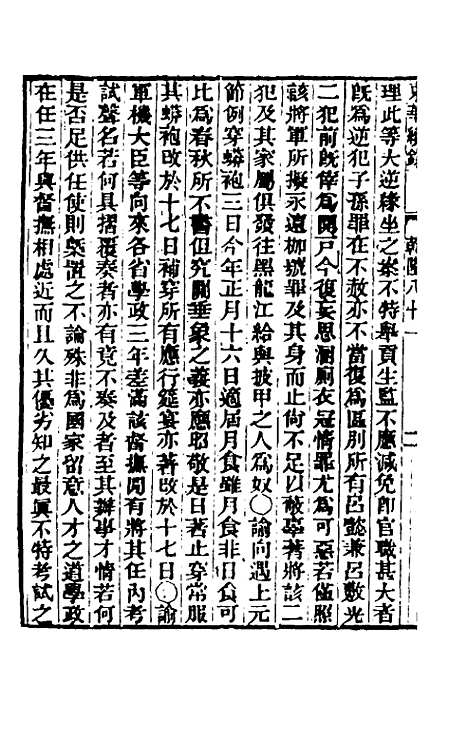 東華續錄 乾隆八十一 二
理此等大逆緣坐之案不特舉貢生監不應減免即官職甚大者
既爲逆犯子孫罪在不赦亦不當復爲區別所有呂懿兼呂敷光
二犯前既倖爲開戶今復妄思溷廁衣冠情罪尤爲可惡若僅照
該將軍所擬永遠枷號罪及其身而止尙不足以蔽辜著將該二
犯及其家屬俱發往黑龍江給與披甲之人爲奴○諭向遇上元
節例穿蟒袍三日今年正月十六日適屆月食雖月食非日食可
比爲春秋所不書但究關垂象之義亦應昭敬是日著止穿常服
其蟒袍改於十七日補穿所有應行筵宴亦著改於十七日○諭
軍機大臣等向來各省學政三年差滿該督撫閒有將其任內考
試聲名若何具摺覆奏者亦有竟不奏及者至其辦學才情若何
是否足供任使則槩置之不論殊非爲國家留意人才之道學政
在任三年與督撫相處近而且久其優劣知之最眞不特考試之